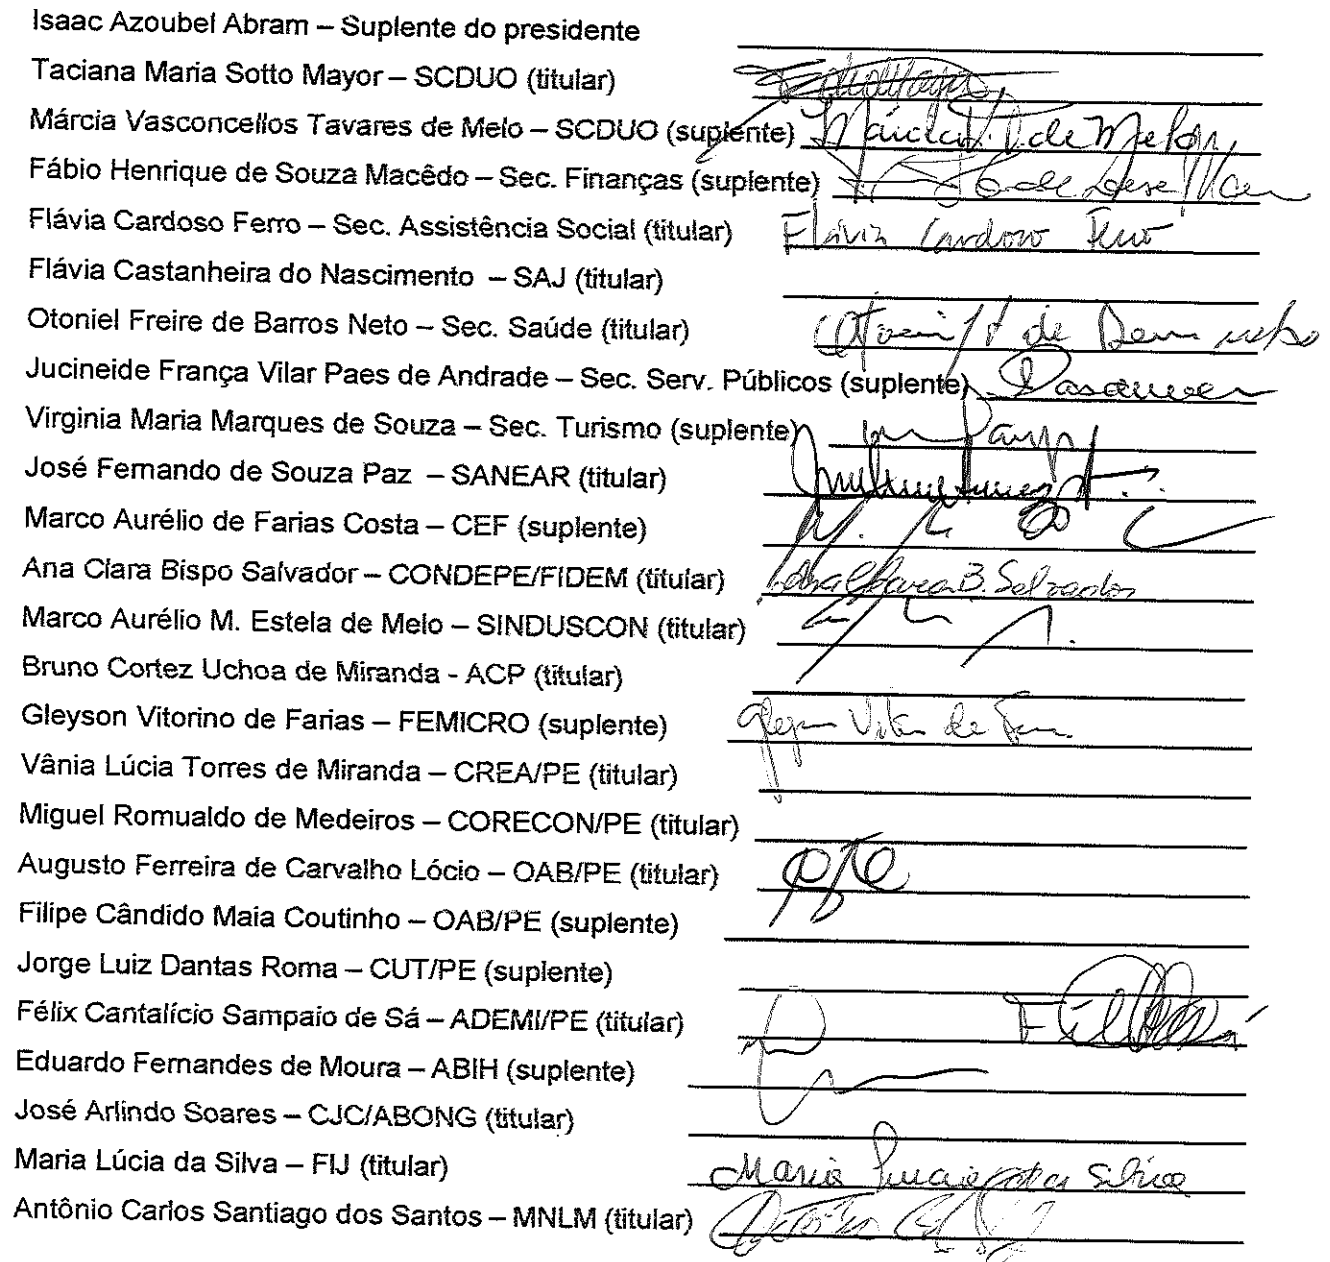 Isaac Azoubel Abram – Suplente do presidente
Taciana Maria Sotto Mayor – SCDUO (titular)
Márcia Vasconcellos Tavares de Melo – SCDUO (suplente) Márcia V. T. de Melo
Fábio Henrique de Souza Macêdo – Sec. Finanças (suplente)
Flávia Cardoso Ferro – Sec. Assistência Social (titular) Flávia Cardoso Ferro
Flávia Castanheira do Nascimento – SAJ (titular)
Otoniel Freire de Barros Neto – Sec. Saúde (titular)
Jucineide França Vilar Paes de Andrade – Sec. Serv. Públicos (suplente)
Virginia Maria Marques de Souza – Sec. Turismo (suplente)
José Fernando de Souza Paz – SANEAR (titular)
Marco Aurélio de Farias Costa – CEF (suplente)
Ana Clara Bispo Salvador – CONDEPE/FIDEM (titular) Ana Clara B. Salvador
Marco Aurélio M. Estela de Melo – SINDUSCON (titular)
Bruno Cortez Uchoa de Miranda - ACP (titular)
Gleyson Vitorino de Farias – FEMICRO (suplente)
Vânia Lúcia Torres de Miranda – CREA/PE (titular)
Miguel Romualdo de Medeiros – CORECON/PE (titular)
Augusto Ferreira de Carvalho Lócio – OAB/PE (titular)
Filipe Cândido Maia Coutinho – OAB/PE (suplente)
Jorge Luiz Dantas Roma – CUT/PE (suplente)
Félix Cantalício Sampaio de Sá – ADEMI/PE (titular)
Eduardo Fernandes de Moura – ABIH (suplente)
José Arlindo Soares – CJC/ABONG (titular)
Maria Lúcia da Silva – FIJ (titular) Maria Lucia da Silva
Antônio Carlos Santiago dos Santos – MNLM (titular)